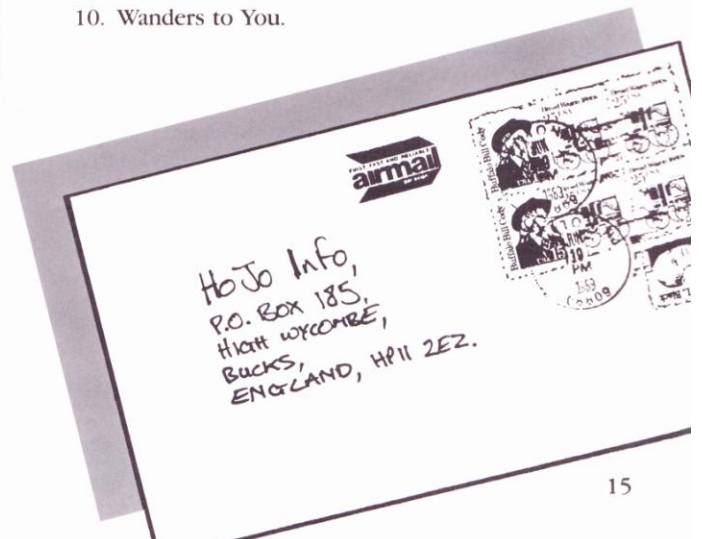 10. Wanders to You.
FIRST FAST AND RELIABLE
airmail
par avion
Buffalo Bill Cody
Buffalo Bill Cody
PM
HoJo Info,
P.O. BOX 185,
HIGH WYCOMBE,
BUCKS,
ENGLAND, HP11 2EZ.
15